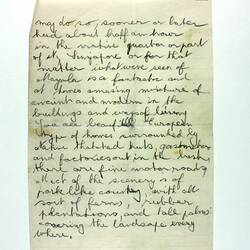 may do so, sooner or later
had about half an hour
in the native quarter or part
of it. Singapore or for that
matter what we've seen of
Malaya is a fantastic and
at times amusing mixture of
ancient and modern in the
buildings and ways of living
You see beautiful European
type of homes surrounded by
native thatched huts, gasworks
and factories out in the bush
there are fine motor roads
Most of the scenery is of
park like country with all
sort of ferns, rubber
plantations, and tall palms
covering the landscape every
where.